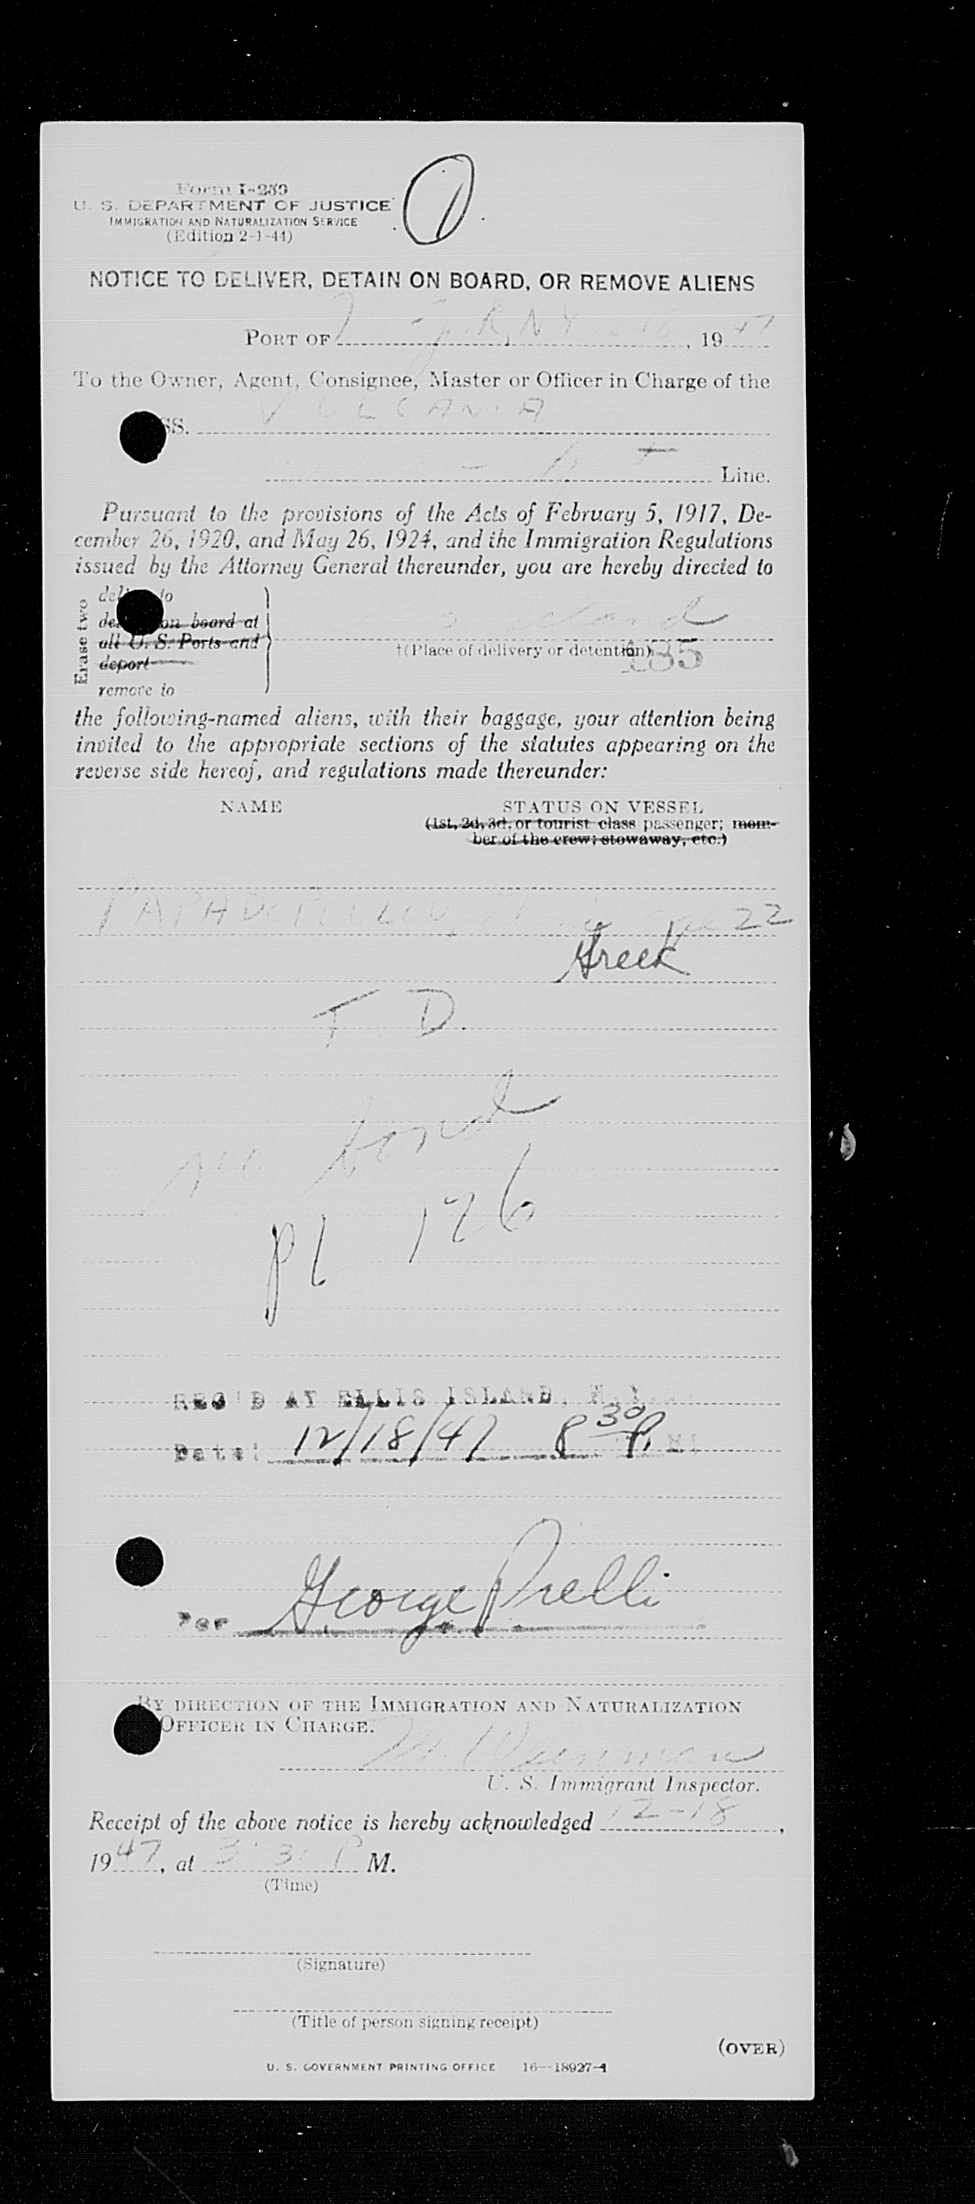 Form I-259
1
U. S. DEPARTMENT OF JUSTICE
IMMIGRATION AND NATURALIZATION SERVICE
(Edition 2-1-44)
NOTICE TO DELIVER, DETAIN ON BOARD, OR REMOVE ALIENS
PORT OF N.Y. , 19 47
To the Owner, Agent, Consignee, Master or Officer in Charge of the
SS. VULCANIA
Line.
Pursuant to the provisions of the Acts of February 5, 1917, De-
cember 26, 1920, and May 26, 1924, and the Immigration Regulations
issued by the Attorney General thereunder, you are hereby directed to
Erase two
deliver to
detain on board at
all U. S. Ports and
deport
remove to
Island
†(Place of delivery or detention)
185
the following-named aliens, with their baggage, your attention being
invited to the appropriate sections of the statutes appearing on the
reverse side hereof, and regulations made thereunder:
NAME STATUS ON VESSEL
(1st, 2d, 3d, or tourist class passenger; mem-
ber of the crew; stowaway, etc.)
22
Greek
T. D.
no bond
pl 126
REC'D AT ELLIS ISLAND, N.Y.
Date: 12/18/47 8 30 P. M.
Per George Prelli
BY DIRECTION OF THE IMMIGRATION AND NATURALIZATION
OFFICER IN CHARGE.
U. S. Immigrant Inspector.
Receipt of the above notice is hereby acknowledged 12-18,
1947, at P M.
(Time)
(Signature)
(Title of person signing receipt)
(OVER)
U. S. GOVERNMENT PRINTING OFFICE 16—18927-1